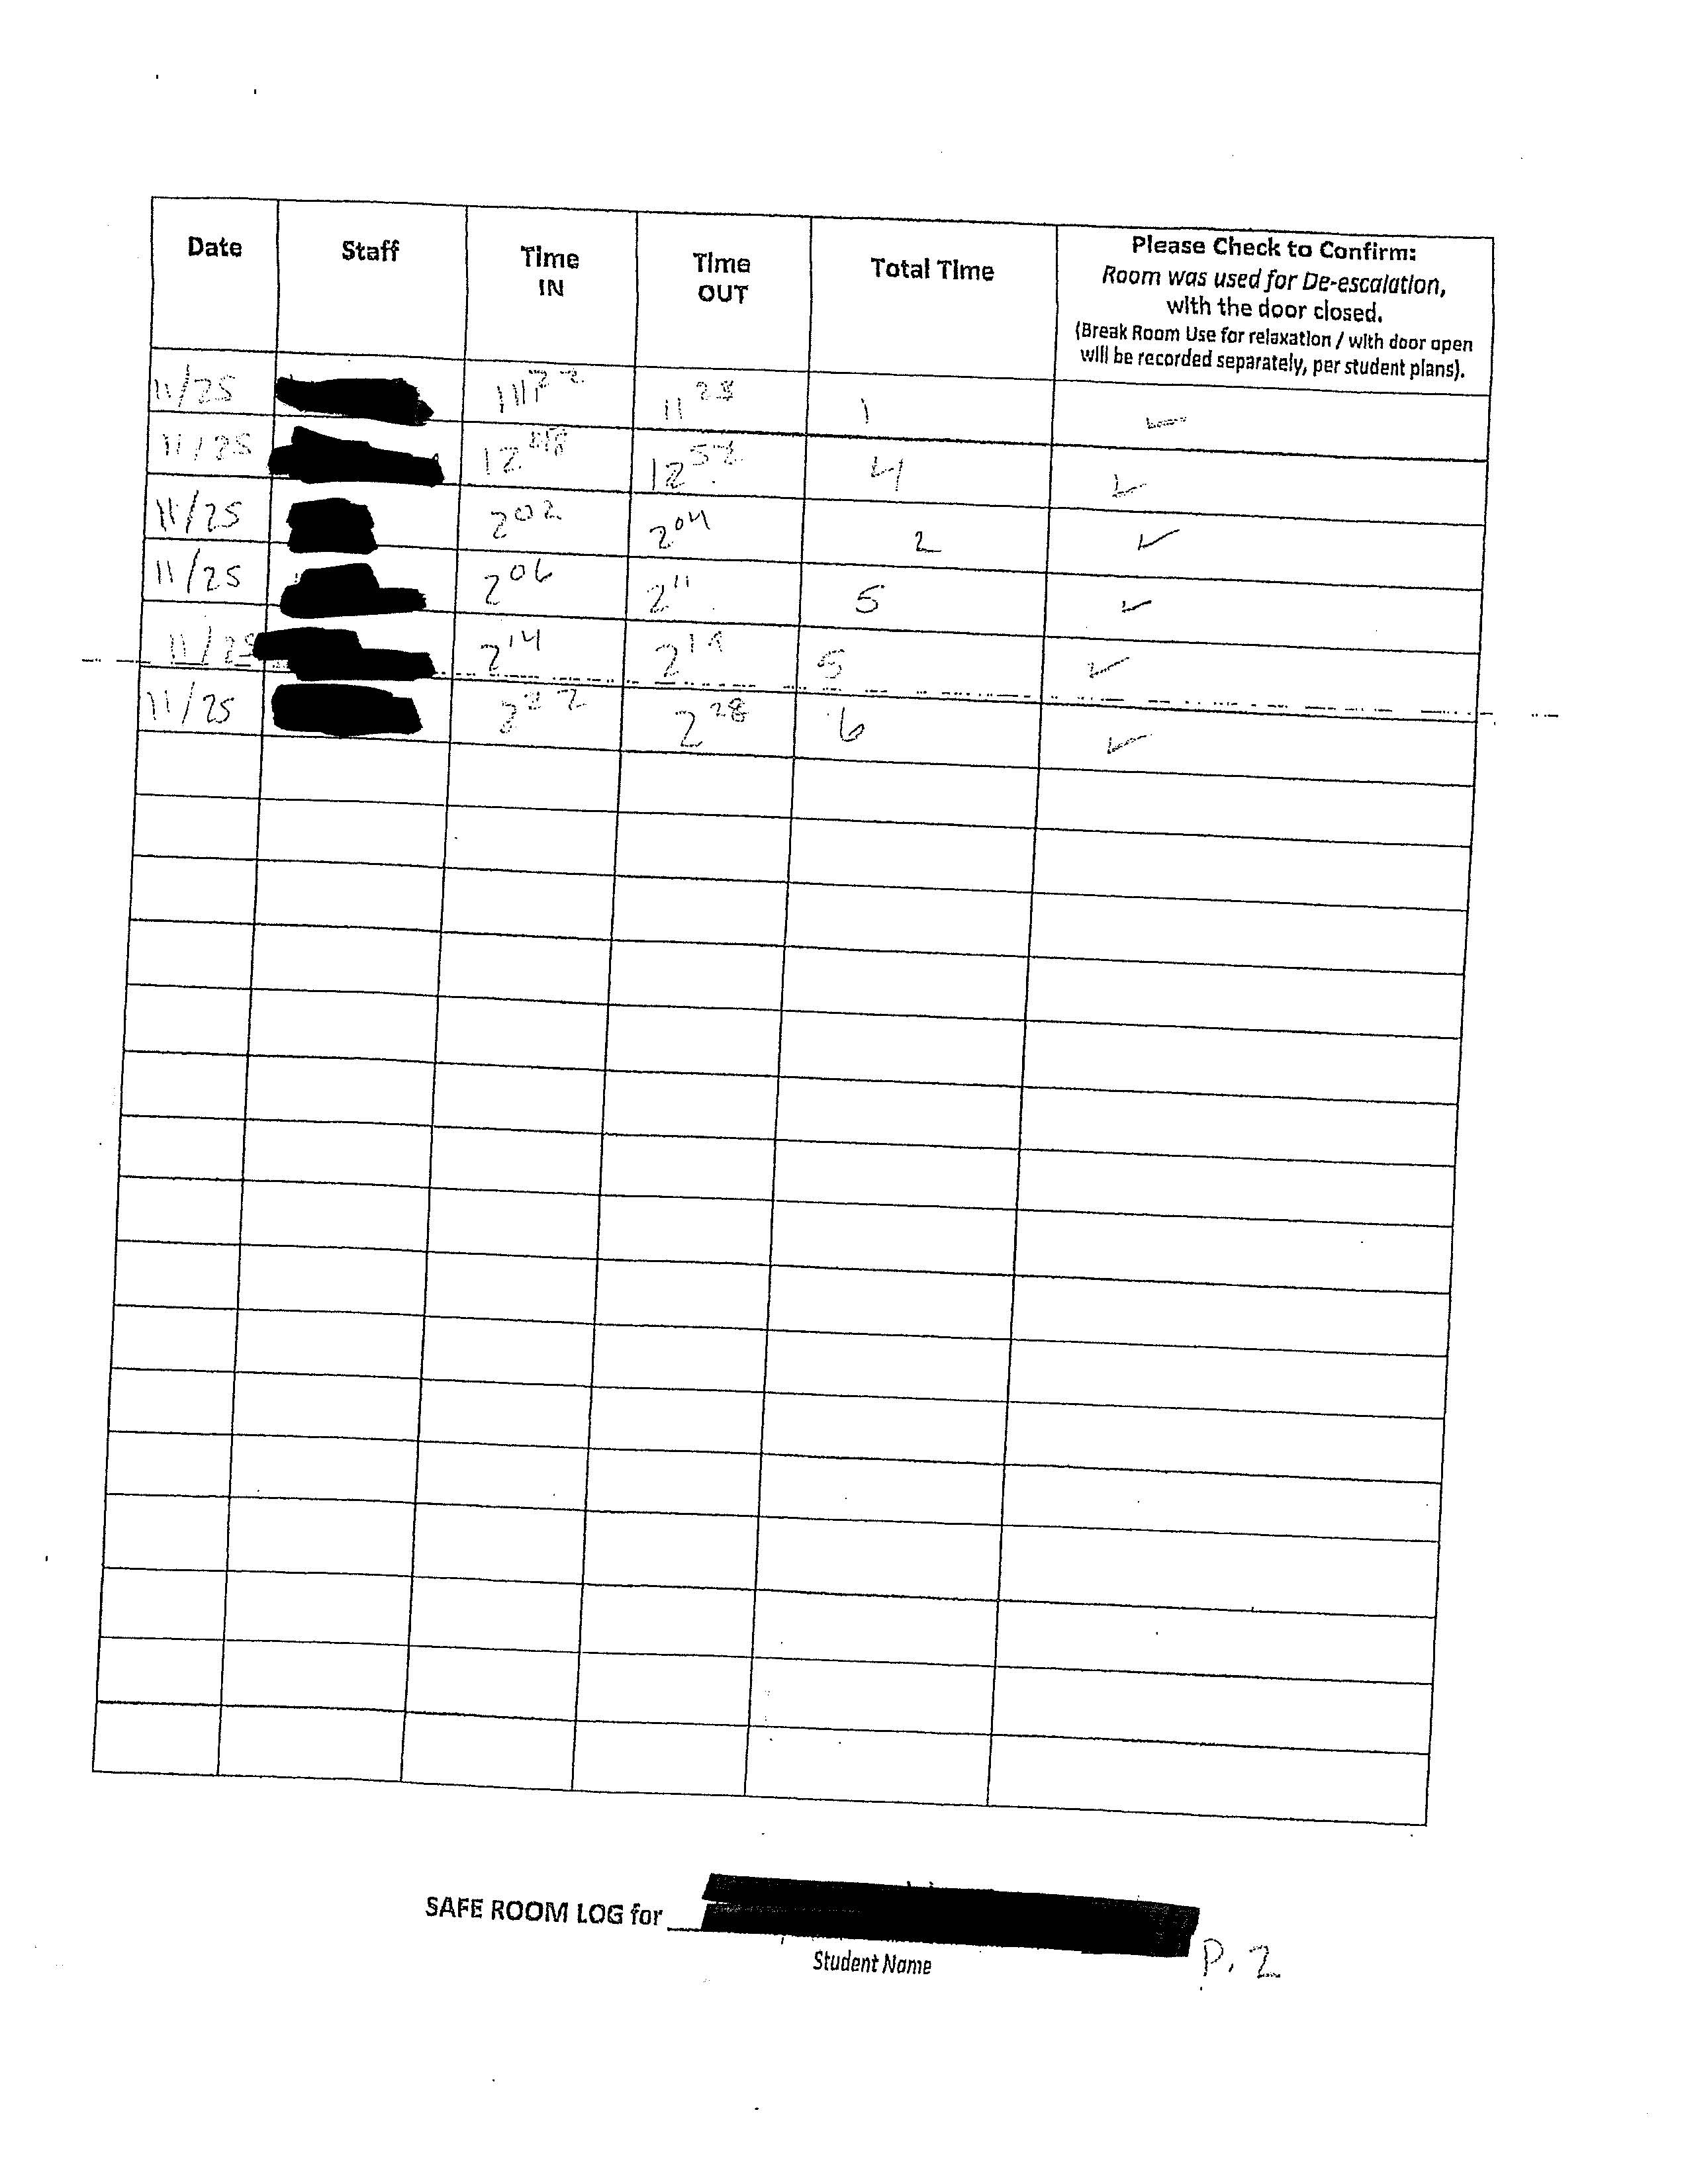 Date Staff Time IN Time OUT Total Time Please Check to Confirm:
Room was used for De-escalation,
with the door closed.
(Break Room Use for relaxation / with door open
will be recorded separately, per student plans).
11/25 11 28 1 ✓
11/25 12 48 12 52 4 ✓
11/25 2 02 2 04 2 ✓
11/25 2 06 2 11 5 ✓
11/25 2 14 2 19 5 ✓
11/25 2 22 2 28 6 ✓
SAFE ROOM LOG for
Student Name
P. 2